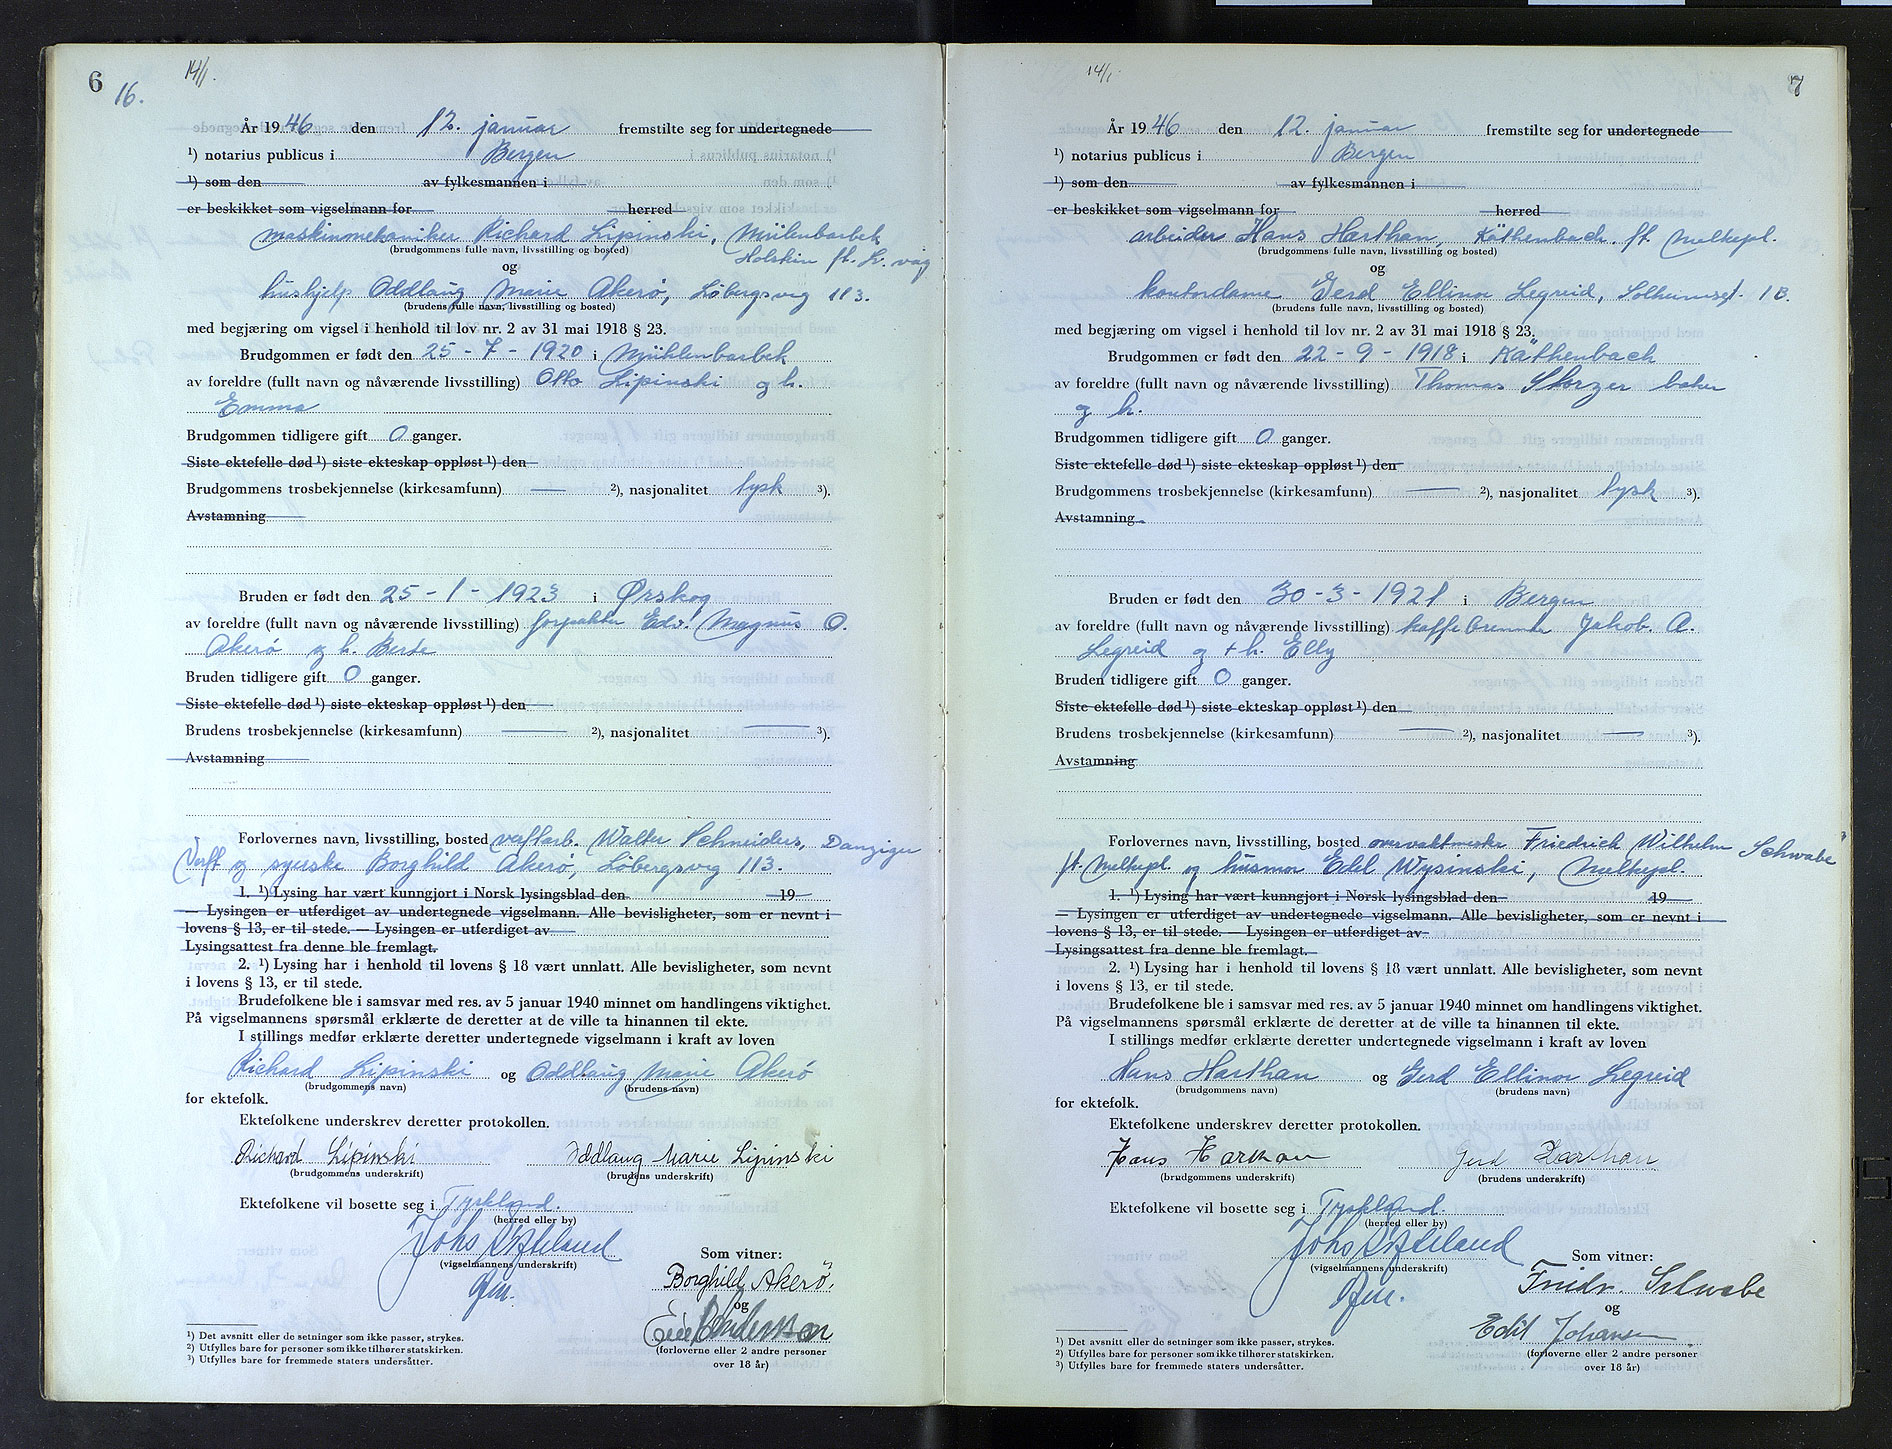 6
16.
14/1.
År 1946 den 12. januar fremstilte seg for undertegnede
¹) notarius publicus i Bergen
¹) som den av fylkesmannen i
er beskikket som vigselmann for herred
maskinmekaniker Richard Lipinski, Mühlenbarbek
Holstein ft. L. vag
(brudgommens fulle navn, livsstilling og bosted)
og
hushjelp Oddlaug Marie Akerø, Løbergsveg 113.
(brudens fulle navn, livsstilling og bosted)
med begjæring om vigsel i henhold til lov nr. 2 av 31 mai 1918 § 23.
Brudgommen er født den 25-7-1920 i Mühlenbarbek
av foreldre (fullt navn og nåværende livsstilling) Otto Lipinski og h.
Emma
Brudgommen tidligere gift 0 ganger.
Siste ektefelle død ¹) siste ekteskap oppløst ¹) den
Brudgommens trosbekjennelse (kirkesamfunn) — ²), nasjonalitet tysk ³).
Avstamning
Bruden er født den 25-1-1923 i Ørskog
av foreldre (fullt navn og nåværende livsstilling) forpakter Edv. Magnus O.
Akerø og h. Berte
Bruden tidligere gift 0 ganger.
Siste ektefelle død ¹) siste ekteskap oppløst ¹) den
Brudens trosbekjennelse (kirkesamfunn) — ²), nasjonalitet — ³).
Avstamning
Forlovernes navn, livsstilling, bosted verftarb. Walter Schneiders, Danziger
Verft og syerske Borghild Akerø, Løbergsveg 113.
1. ¹) Lysing har vært kunngjort i Norsk lysingsblad den 19
— Lysingen er utferdiget av undertegnede vigselmann. Alle bevisligheter, som er nevnt i
lovens § 13, er til stede. — Lysingen er utferdiget av
Lysingsattest fra denne ble fremlagt.
2. ¹) Lysing har i henhold til lovens § 18 vært unnlatt. Alle bevisligheter, som nevnt
i lovens § 13, er til stede.
Brudefolkene ble i samsvar med res. av 5 januar 1940 minnet om handlingens viktighet.
På vigselmannens spørsmål erklærte de deretter at de ville ta hinannen til ekte.
I stillings medfør erklærte deretter undertegnede vigselmann i kraft av loven
Richard Lipinski og Oddlaug Marie Akerø
(brudgommens navn) (brudens navn)
for ektefolk.
Ektefolkene underskrev deretter protokollen.
Richard Lipinski Oddlaug Marie Lipinski
(brudgommens underskrift) (brudens underskrift)
Ektefolkene vil bosette seg i Tyskland.
(herred eller by)
Johs
(vigselmannens underskrift)
Som vitner:
Borghild Akerø.
og
(forloverne eller 2 andre personer
over 18 år)
¹) Det avsnitt eller de setninger som ikke passer, strykes.
²) Utfylles bare for personer som ikke tilhører statskirken.
³) Utfylles bare for fremmede staters undersåtter.
7
14/1
År 1946 den 12. januar fremstilte seg for undertegnede
¹) notarius publicus i Bergen
¹) som den av fylkesmannen i
er beskikket som vigselmann for herred
arbeider Hans Harthan, Käthenbach. ft. Melkepl.
(brudgommens fulle navn, livsstilling og bosted)
og
kontordame Gerd Ellinor Legreid, Solheimsgt. 1 B.
(brudens fulle navn, livsstilling og bosted)
med begjæring om vigsel i henhold til lov nr. 2 av 31 mai 1918 § 23.
Brudgommen er født den 22-9-1918 i Käthenbach
av foreldre (fullt navn og nåværende livsstilling) Thomas Storzer baker
og h.
Brudgommen tidligere gift 0 ganger.
Siste ektefelle død ¹) siste ekteskap oppløst ¹) den
Brudgommens trosbekjennelse (kirkesamfunn) — ²), nasjonalitet tysk ³).
Avstamning
Bruden er født den 30-3-1921 i Bergen
av foreldre (fullt navn og nåværende livsstilling) kaffebrenner Jakob. A.
Legreid og + h. Elly
Bruden tidligere gift 0 ganger.
Siste ektefelle død ¹) siste ekteskap oppløst ¹) den
Brudens trosbekjennelse (kirkesamfunn) — ²), nasjonalitet — ³).
Avstamning
Forlovernes navn, livsstilling, bosted Friedrich Wilhelm Schwabe
ft. Melkepl. og husmor Edel Wysinski, Melkepl.
1. ¹) Lysing har vært kunngjort i Norsk lysingsblad den 19
— Lysingen er utferdiget av undertegnede vigselmann. Alle bevisligheter, som er nevnt i
lovens § 13, er til stede. — Lysingen er utferdiget av
Lysingsattest fra denne ble fremlagt.
2. ¹) Lysing har i henhold til lovens § 18 vært unnlatt. Alle bevisligheter, som nevnt
i lovens § 13, er til stede.
Brudefolkene ble i samsvar med res. av 5 januar 1940 minnet om handlingens viktighet.
På vigselmannens spørsmål erklærte de deretter at de ville ta hinannen til ekte.
I stillings medfør erklærte deretter undertegnede vigselmann i kraft av loven
Hans Harthan og Gerd Ellinor Legreid
(brudgommens navn) (brudens navn)
for ektefolk.
Ektefolkene underskrev deretter protokollen.
Hans Harthan Gerd Harthan
(brudgommens underskrift) (brudens underskrift)
Ektefolkene vil bosette seg i Tyskland.
(herred eller by)
Johs
(vigselmannens underskrift)
Som vitner:
Friedr. Schwabe
og
Edit Johansen
(forloverne eller 2 andre personer
over 18 år)
¹) Det avsnitt eller de setninger som ikke passer, strykes.
²) Utfylles bare for personer som ikke tilhører statskirken.
³) Utfylles bare for fremmede staters undersåtter.